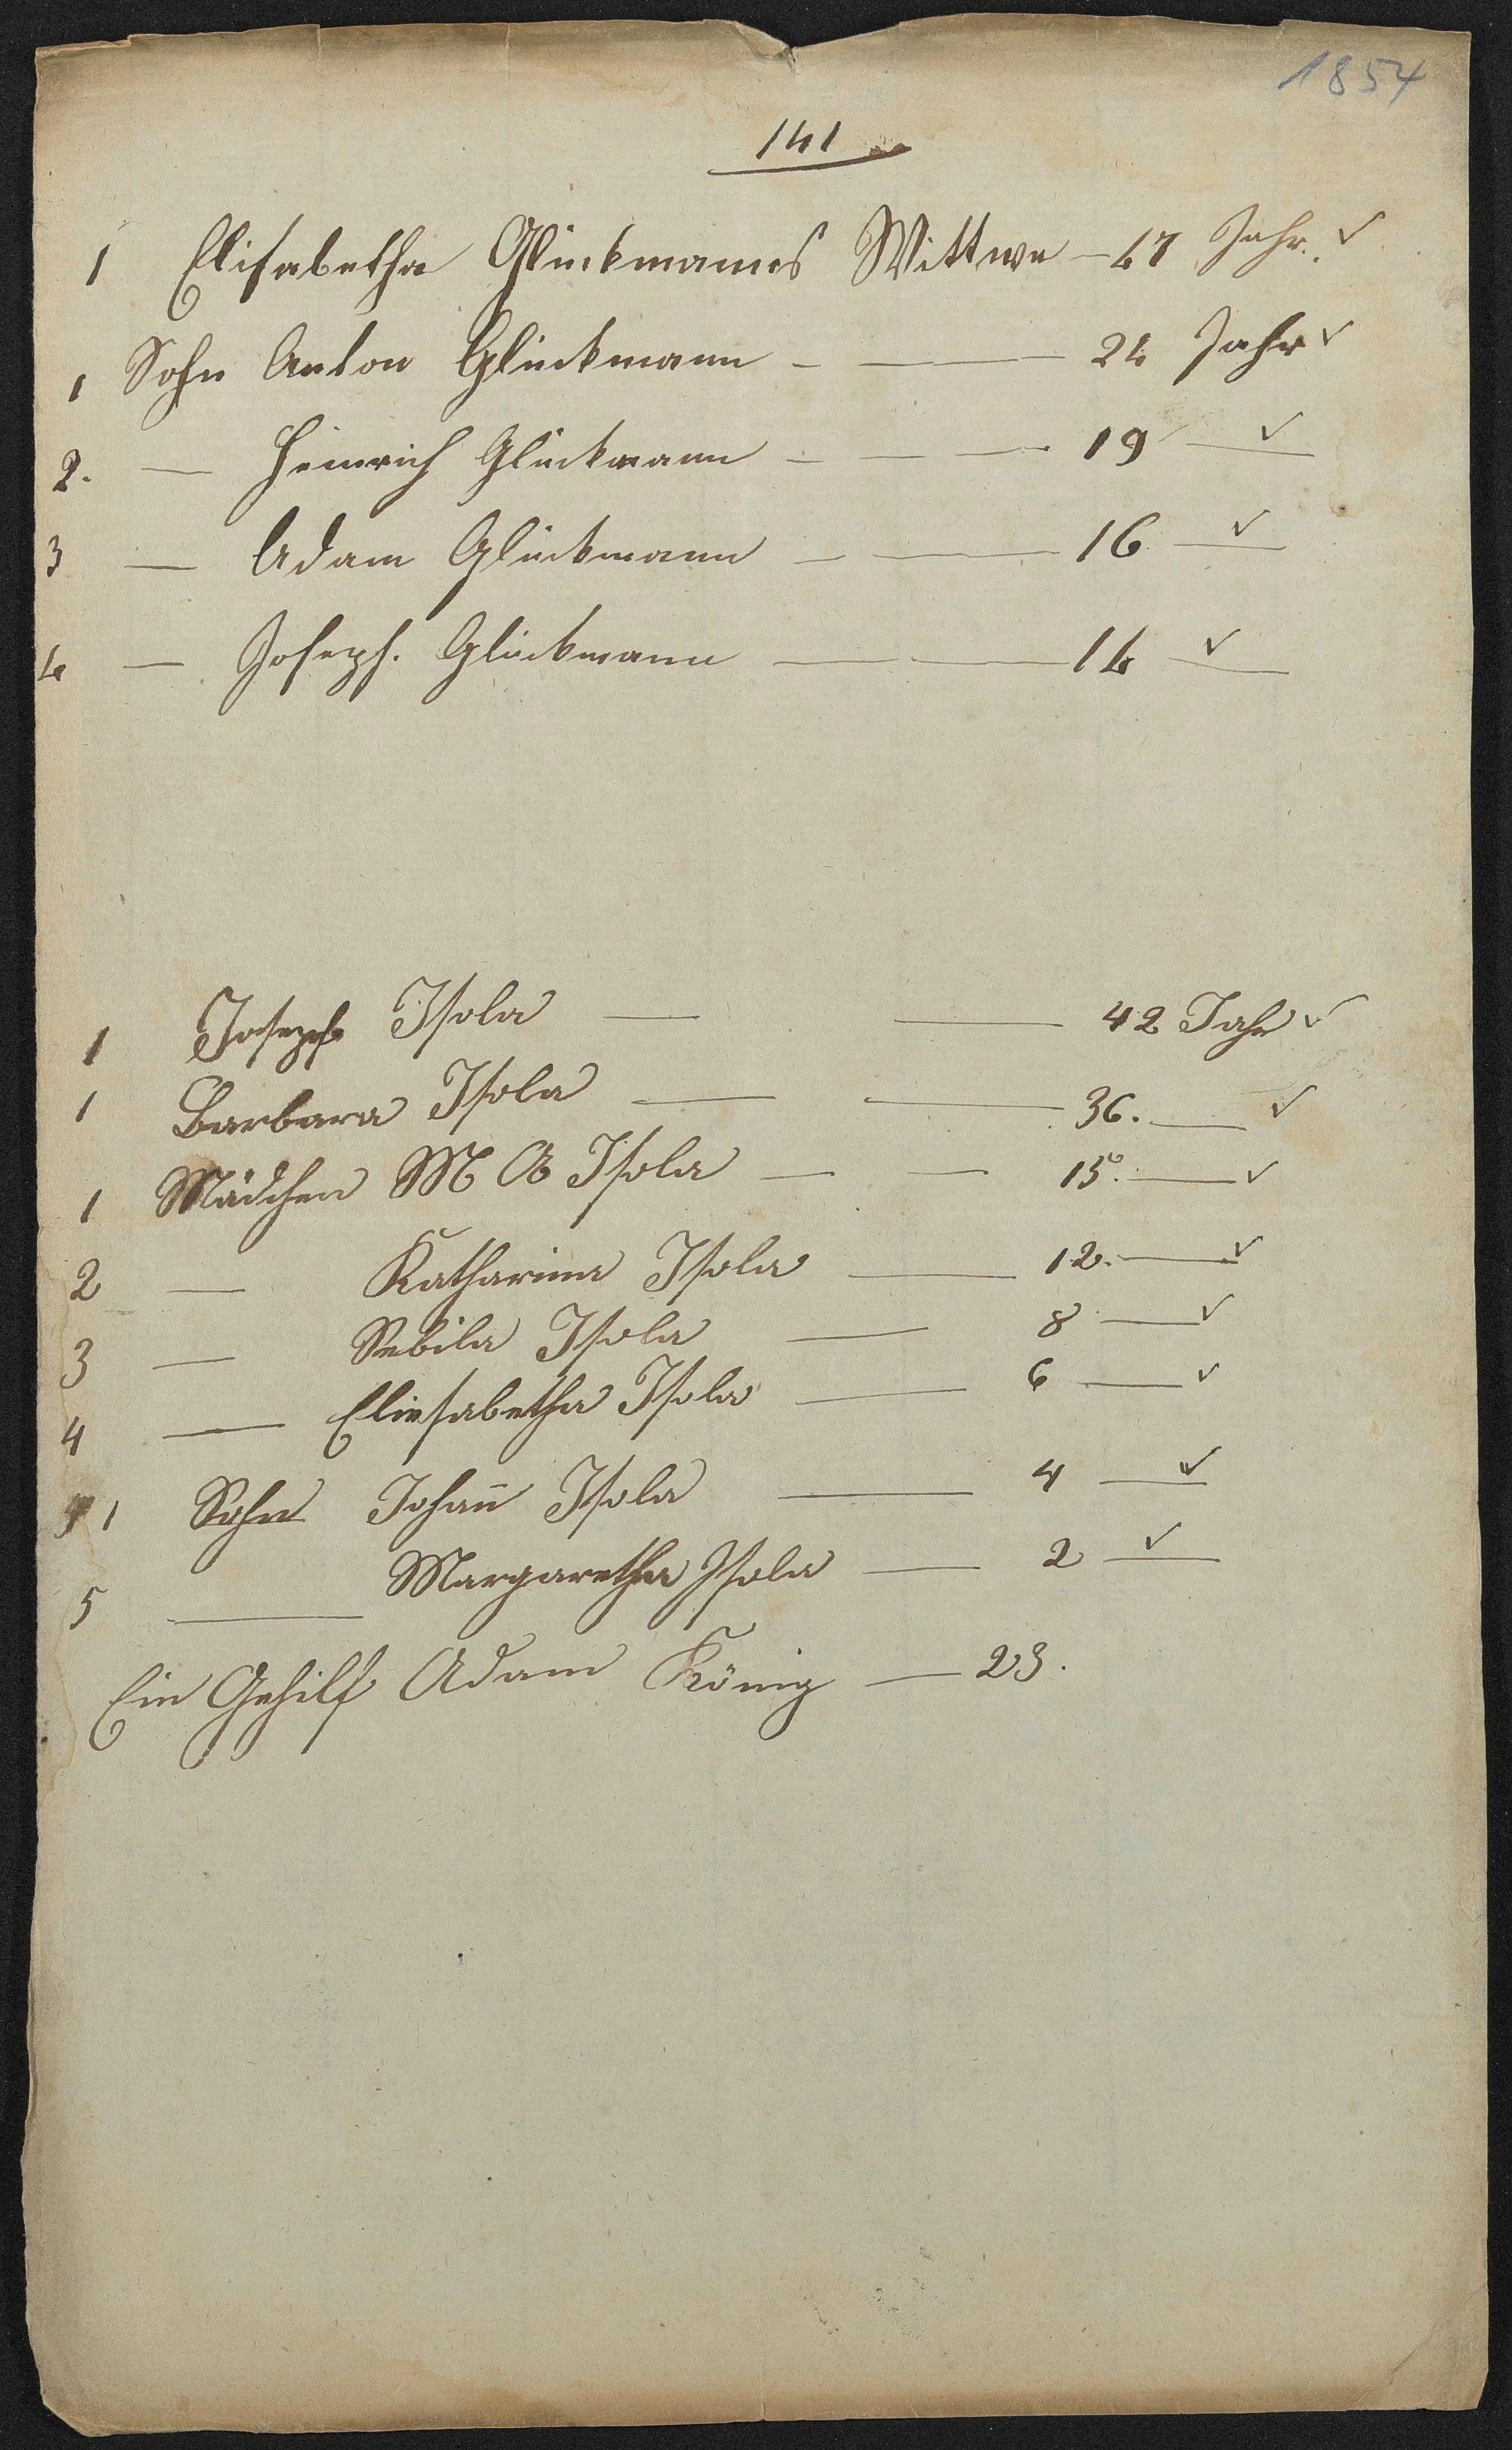 1854
141
1 Elisabetha Glückmanns Wittwe — 47 Jahr. ✓
1 Sohn Anton Glückmann — — 24 Jahr ✓
2. — Heinrich Glückmann — — — 19 — ✓
3 — Adam Glückmann — — 16 — ✓
4 — Joseph. Glückmann — — 14 — ✓
1 Joseph Isola — — 42 Jahr ✓
1 Barbara Isola — — 36. — ✓
1 Mädchen M A Isola — — 15. — ✓
2 — Katharina Isola — 12. — ✓
3 — Sebila Isola — 8 — ✓
4 — Eliesabetha Isola — 6 — ✓
1 Sohn Johañ Isola — 4 — ✓
5 — Margaretha Isola — 2 — ✓
Ein Gehilf Adam König — 23.